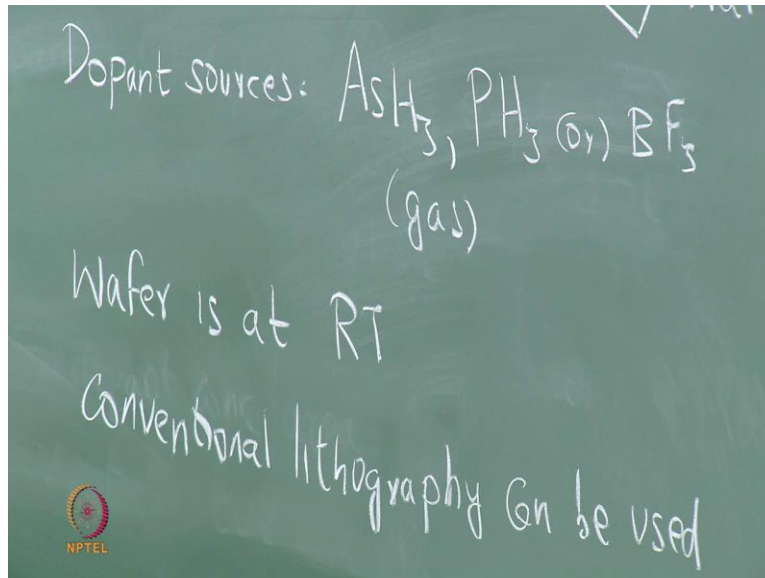 Dopant sources: AsH3, PH3 (or) BF3
(gas)
Wafer is at RT
Conventional lithography Can be used
NPTEL